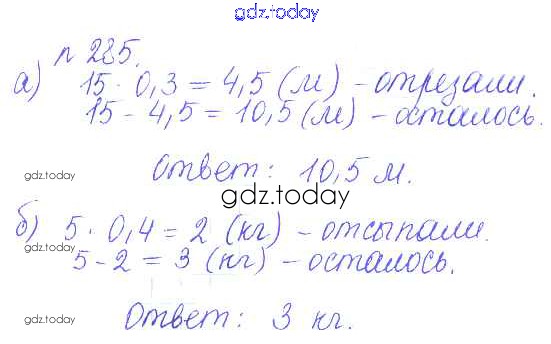 gdz.today
п 285.
а) 15 · 0,3 = 4,5 (м) - отрезали.
15 - 4,5 = 10,5 (м) - осталось.
Ответ: 10,5 м.
gdz.today
gdz.today
б) 5 · 0,4 = 2 (кг) - отсыпали.
gdz.today
5 - 2 = 3 (кг) - осталось.
Ответ: 3 кг.
gdz.today